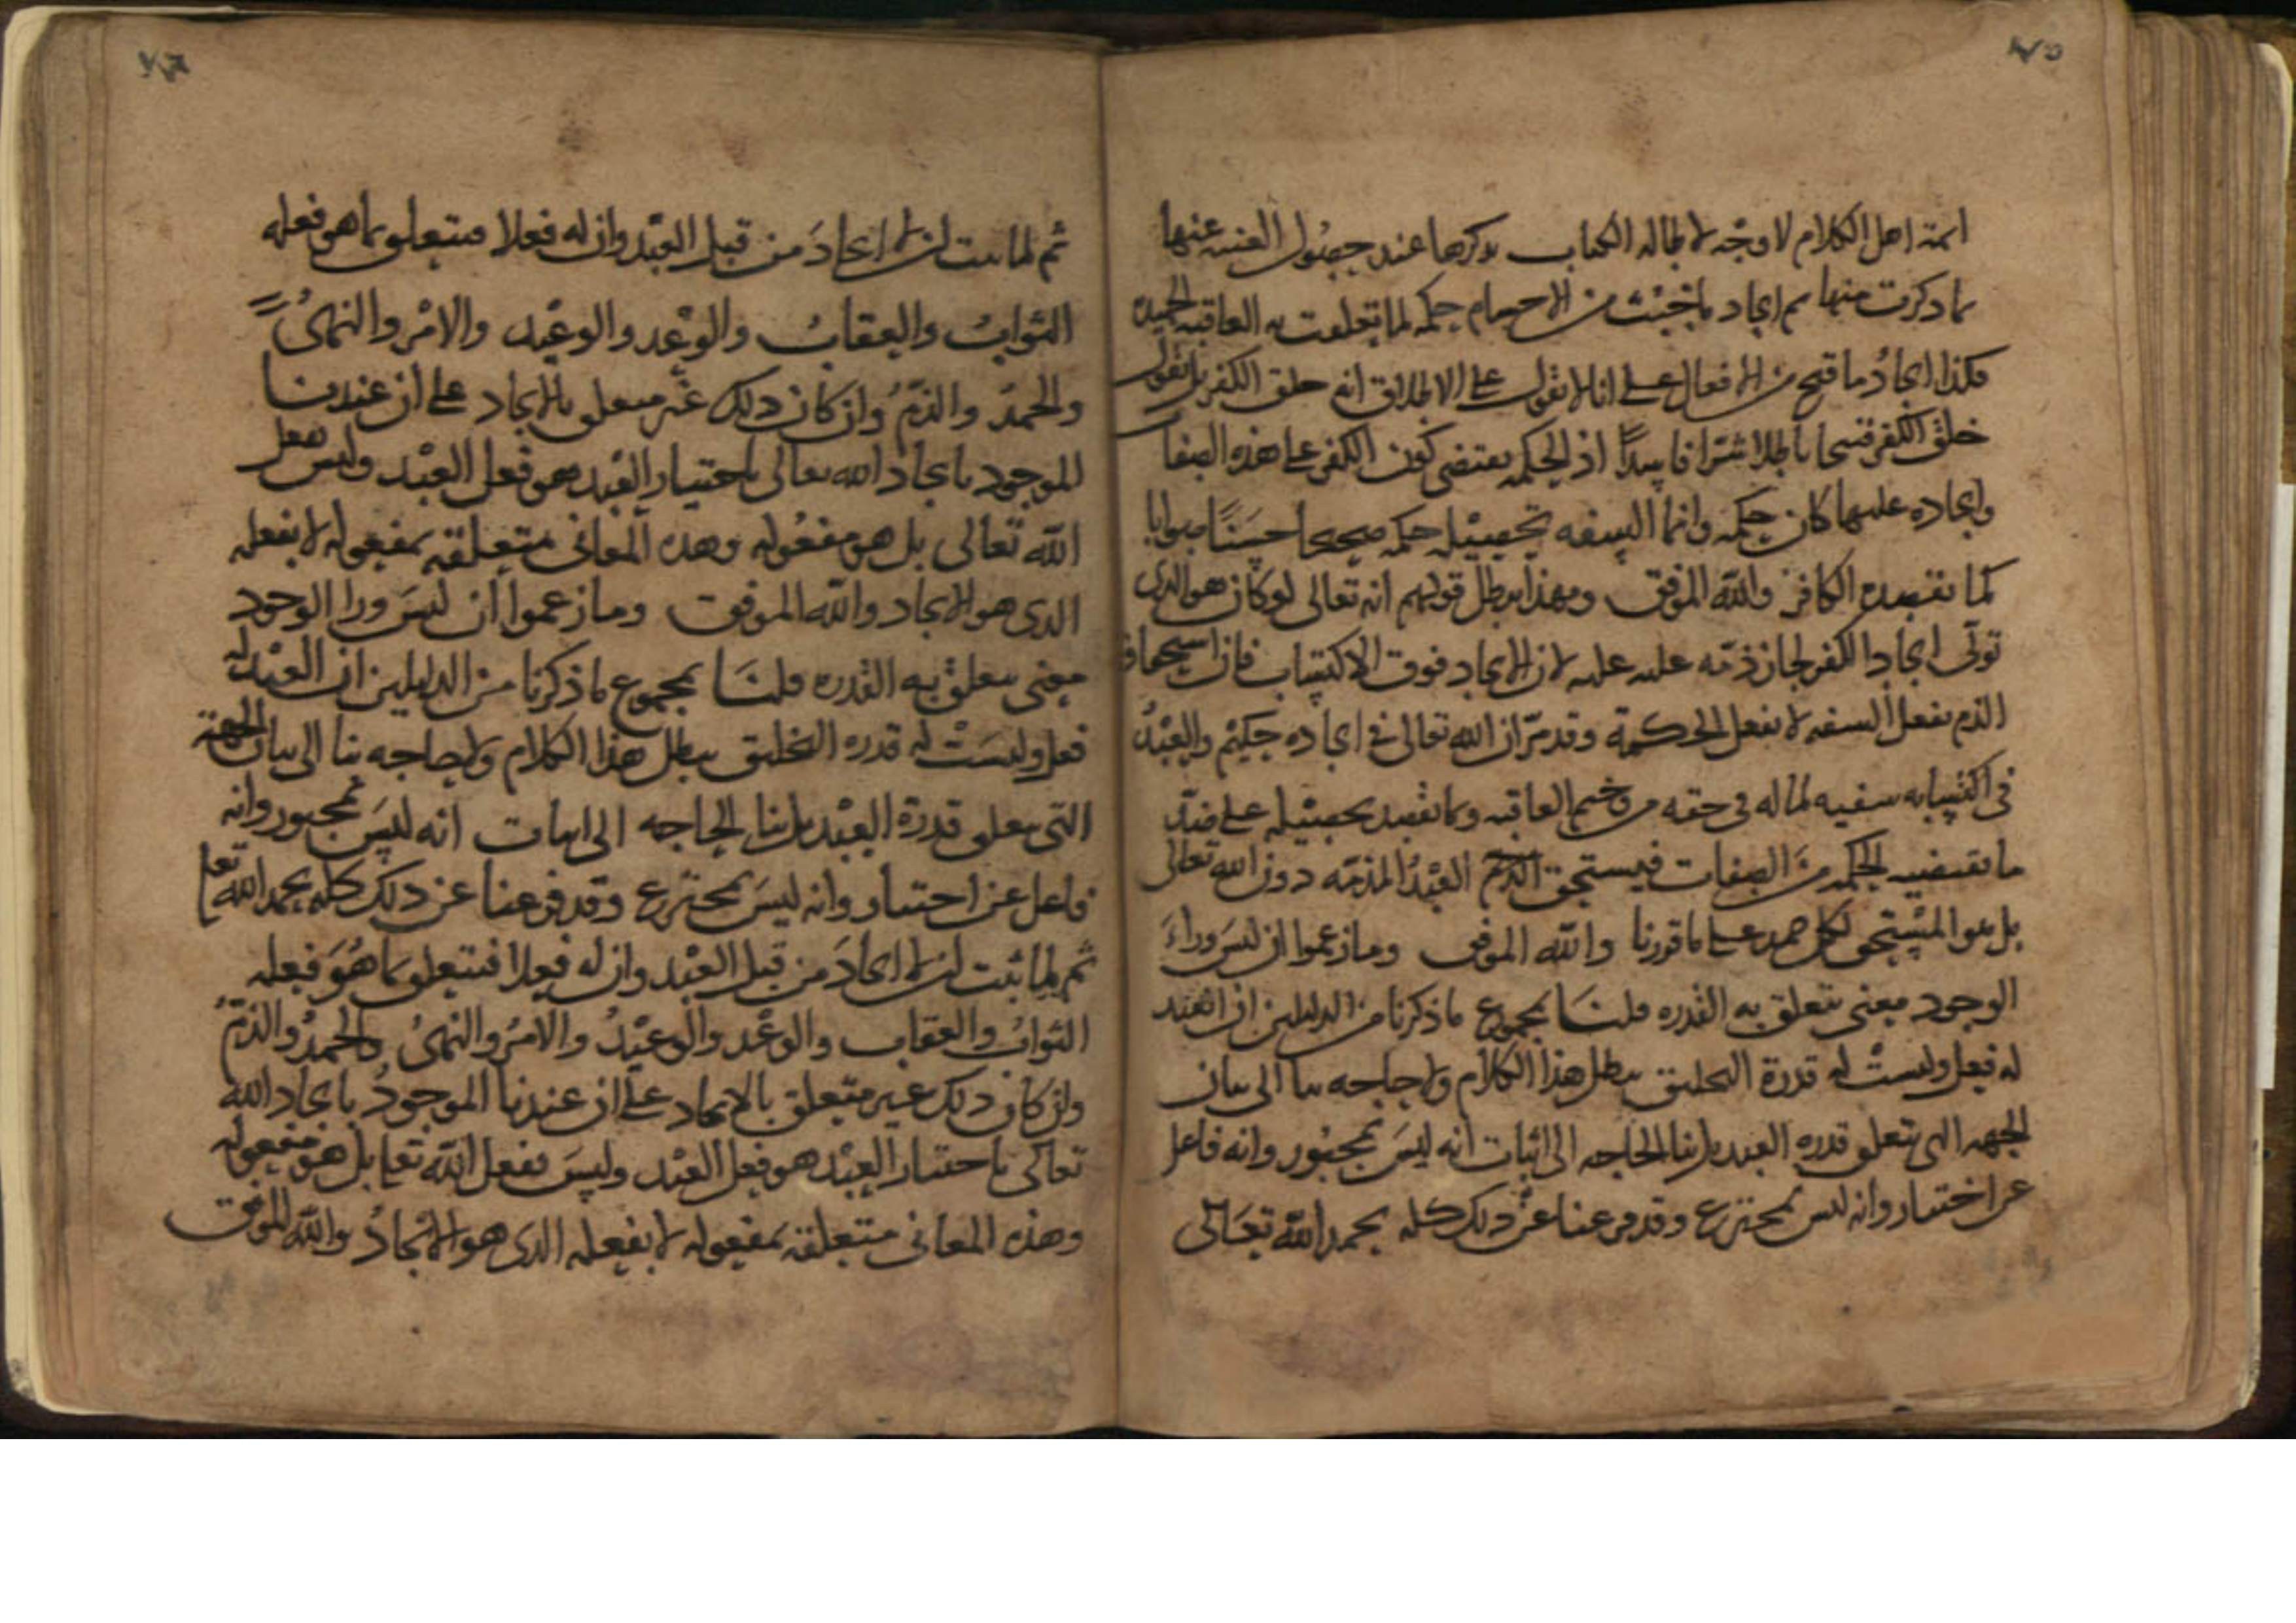 ٧٥
ائمة اهل الكلام لا وجه لاطالة الكتاب بذكرها عند حصول الغنية عنها
بما ذكرت منها ثم ايجاد ما خبث من الاجسام حكمة لما تعلقت به العاقبة الحميدة
فكذا ايجاد ما قبح من الافعال على انا لا نقول على الاطلاق انه خلق الكفر بل نقول
خلق الكفر قبيحا باطلا شرا فاسدا اذ الحكمة تقتضى كون الكفر على هذه الصفات
وايجاده عليها كان حكمة وانما السفه تحصيله حكمة صحيحا حسنا صوابا
كما يقصده الكافر والله الموفق وبهذا يبطل قولهم انه تعالى لو كان هو الذى
تولى ايجاد الكفر لجاز ذمه عليه لان الايجاد فوق الاكتساب فان استحقاق
الذم بفعل السفه لا بفعل الحكمة وقد مر ان الله تعالى فى ايجاده حكيم والعبد
فى اكتسابه سفيه لما له فى حقه من وخيم العاقبة وبما يقصد تحصيله على ضد
ما تقتضيه الحكمة من الصفات فيستحق العبد المذمة دون الله تعالى
بل هو المستحق لكل حمد على ما قررنا والله الموفق وما زعموا ان ليس وراء
الوجود معنى تتعلق به القدرة قلنا بمجموع ما ذكرنا من الدليلين ان للعبد
له فعل وليست له قدرة التخليق يبطل هذا الكلام ولا حاجة بنا الى بيان
الجهة التى تتعلق قدرة العبد بل بنا الحاجة الى اثبات انه ليس بمجبور وانه فاعل
عن اختيار وانه ليس بمخترع وقد فرغنا عن ذلك كله بحمد الله تعالى
٧٦
ثم لما ثبت ان لا ايجاد من قبل العبد وان له فعلا فيتعلق بما هو فعله
الثواب والعقاب والوعد والوعيد والامر والنهى
والحمد والذم وان كان ذلك غير متعلق بالايجاد على ان عندنا
الموجود بايجاد الله تعالى باختيار العبد هو فعل العبد وليس بفعل
الله تعالى بل هو مفعوله وهذه المعانى متعلقة بمفعوله لا بفعله
الذى هو الايجاد والله الموفق وما زعموا ان ليس ورا الوجود
معنى يتعلق به القدرة قلنا بمجموع ما ذكرنا من الدليلين ان العبد له
فعل وليست له قدرة التخليق يبطل هذا الكلام ولا حاجة بنا الى بيان الجهة
التى يتعلق قدرة العبد بل بنا الحاجة الى اثبات انه ليس بمجبور وانه
فاعل عن اختيار وانه ليس بمخترع وقد فرغنا عن ذلك كله بحمد الله تعا
ثم لما ثبت ان لا ايجاد من قبل العبد وان له فعلا فيتعلق بما هو فعله
الثواب والعقاب والوعد والوعيد والامر والنهى والحمد والذم
وان كان ذلك غير متعلق بالايجاد على ان عندنا الموجود بايجاد الله
تعالى باختيار العبد هو فعل العبد وليس بفعل الله تعا بل هو مفعوله
وهذه المعانى متعلقة بمفعوله لا بفعله الذى هو الايجاد والله الموفق